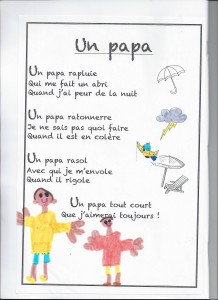 Un papa
Un papa rapluie
Qui me fait un abri
Quand j'ai peur de la nuit
Un papa ratonnerre
Je ne sais pas quoi faire
Quand il est en colère
Un papa rasol
Avec qui je m'envole
Quand il rigole
Un papa tout court
Que j'aimerai toujours !